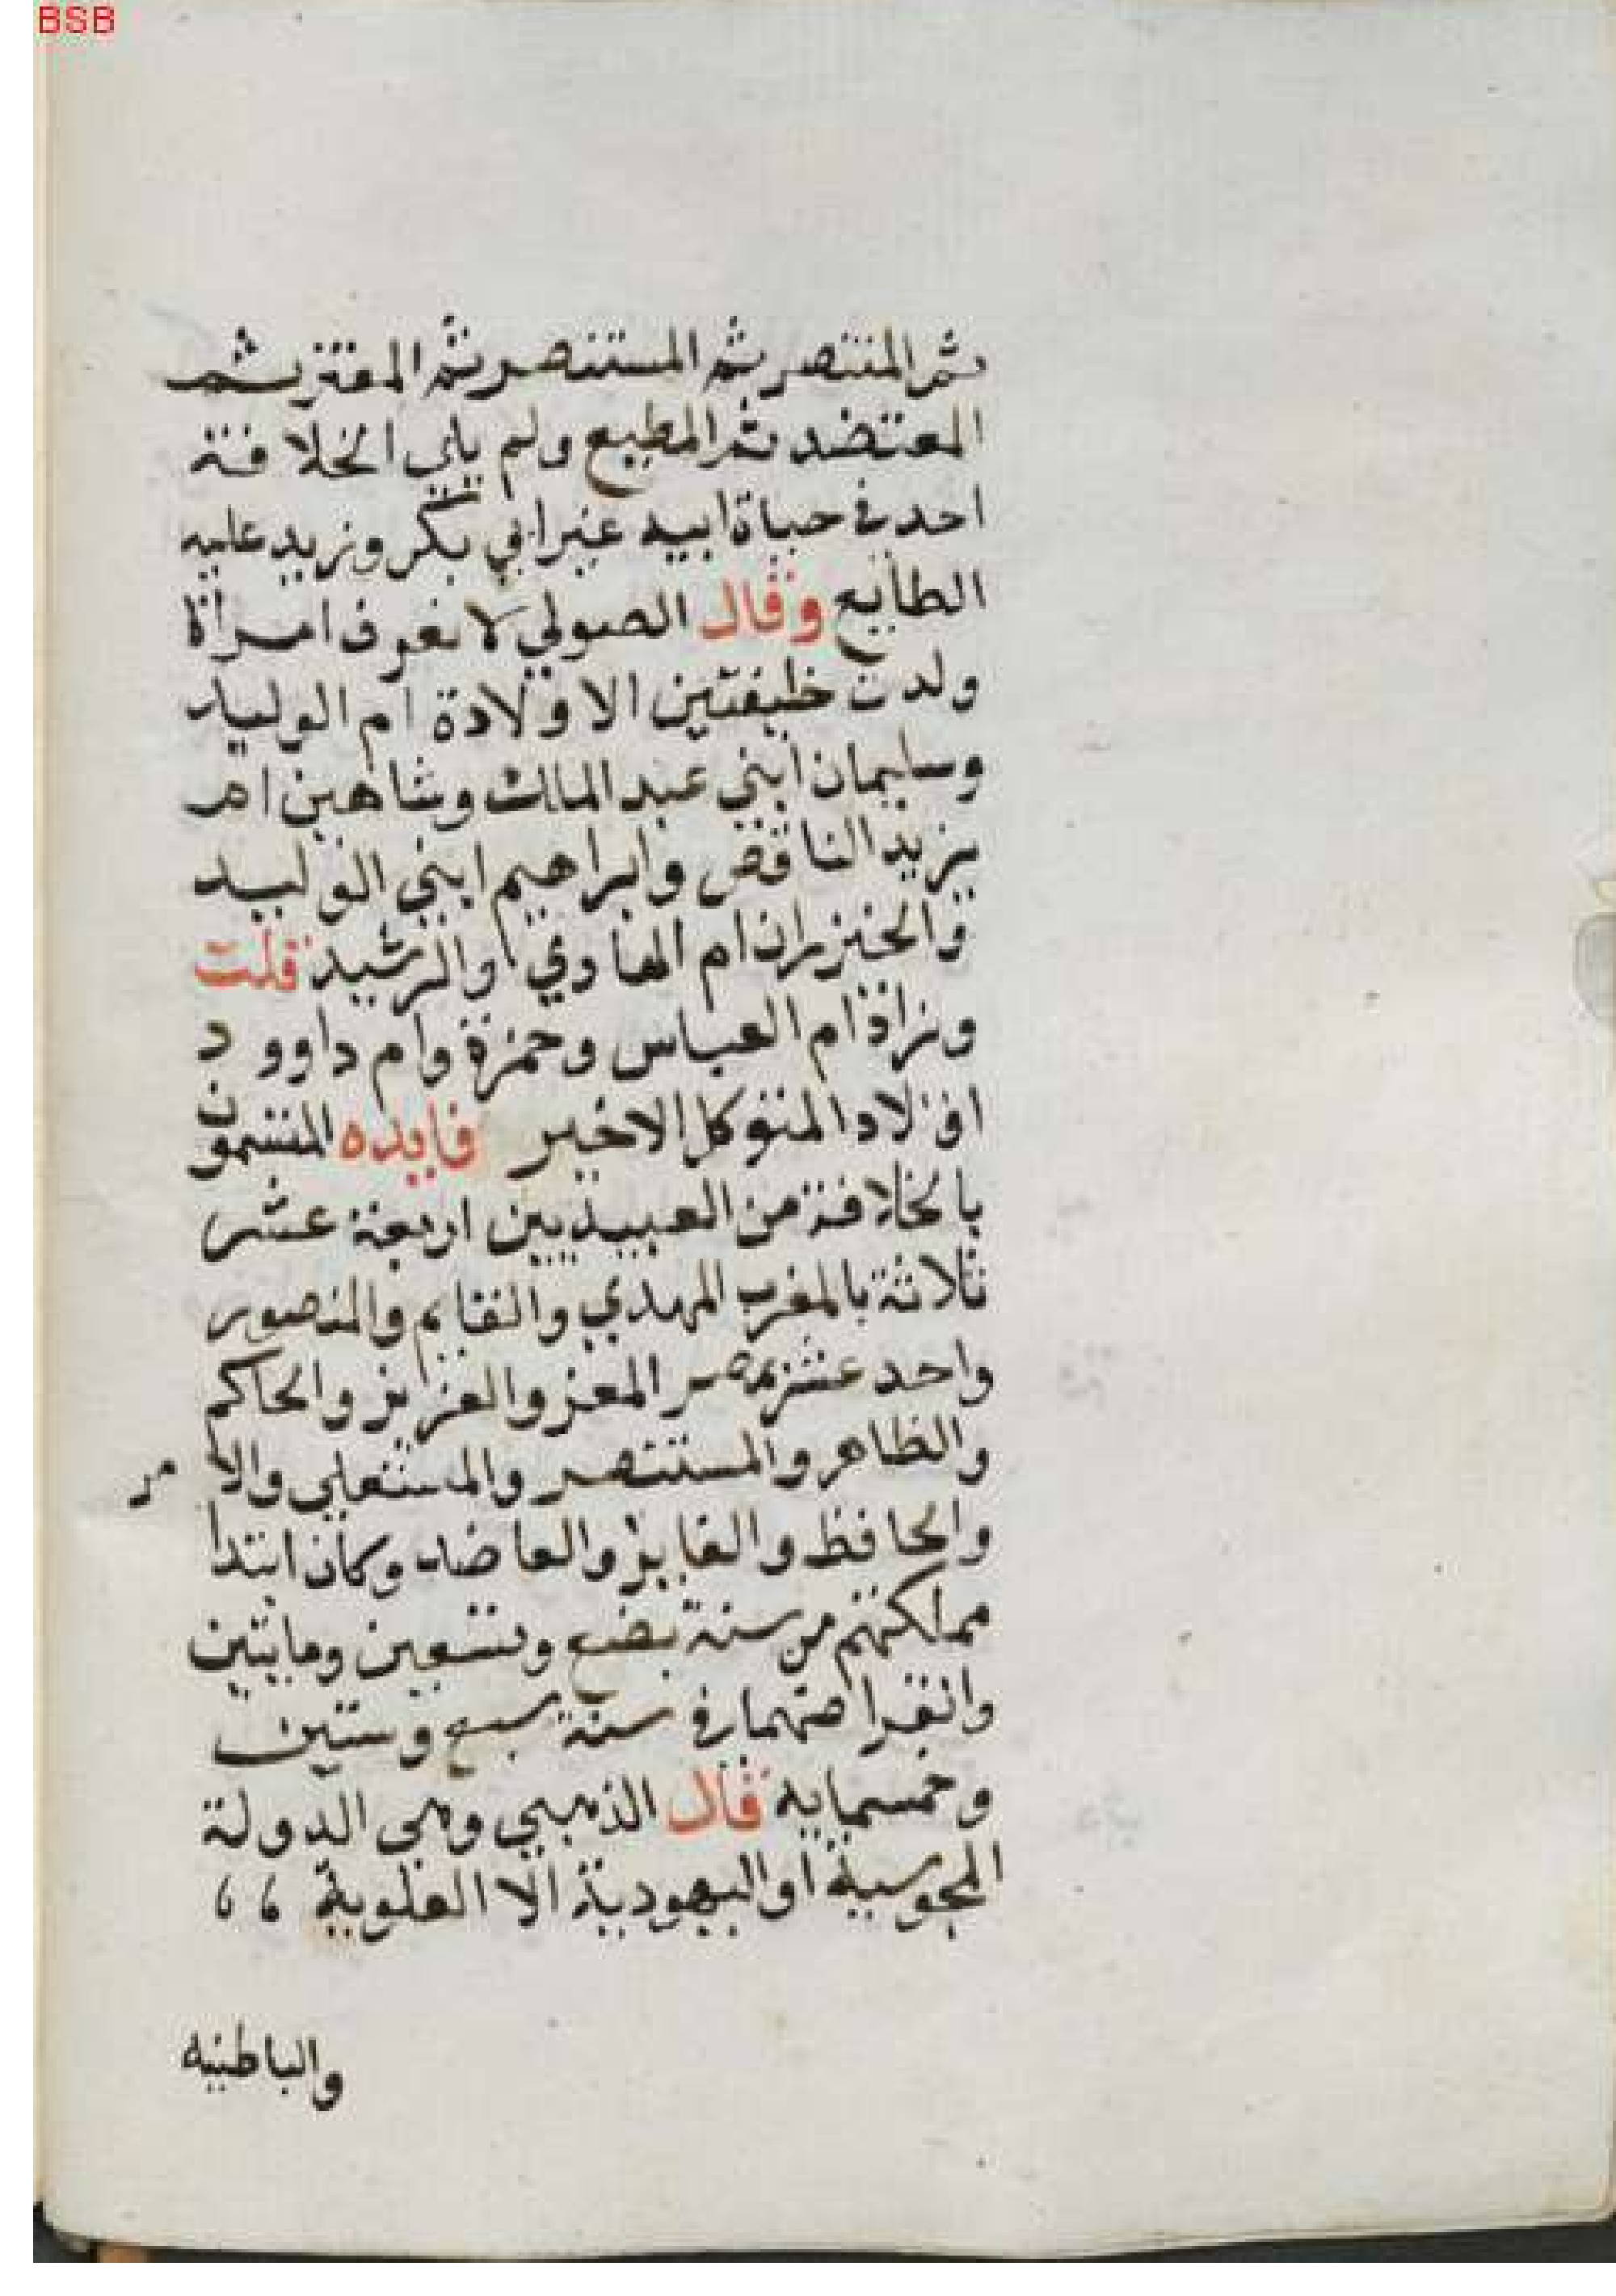 BSB
ثم المنتصر ثم المستنصر ثم المعتز ثم
المعتضد ثم المطيع ولم يلي الخلافة
احد في حياة ابيه غير ابي بكر وزيد عليه
الطايع وقال الصولي لا نعرف امرأة
ولدت خليفتين الا ولادة ام الوليد
وسليمان ابني عبد الملك وشاهين ام
يزيد الناقص وابراهيم ابني الوليد
والخيزران ام الهادي والرشيد قلت
ويزاد ام العباس وحمزة وام داوود
اولاد المتوكل الاخير فايده المتسمون
بالخلافة من العبيديين اربعة عشر
ثلاثة بالمغرب المهدي والقايم والمنصور
واحد عشر بمصر المعز والعزيز والحاكم
والظاهر والمستنصر والمستعلي والامر
والحافظ والفايز والعاضد وكان ابتدا
مملكتهم من سنة بضع وتسعين ومايتين
وانقراضهما في سنة سبع وستين
وخمسمايه قال الذهبي وهي الدولة
المجوسية او اليهودية الا العلوية ،،
والباطنيه